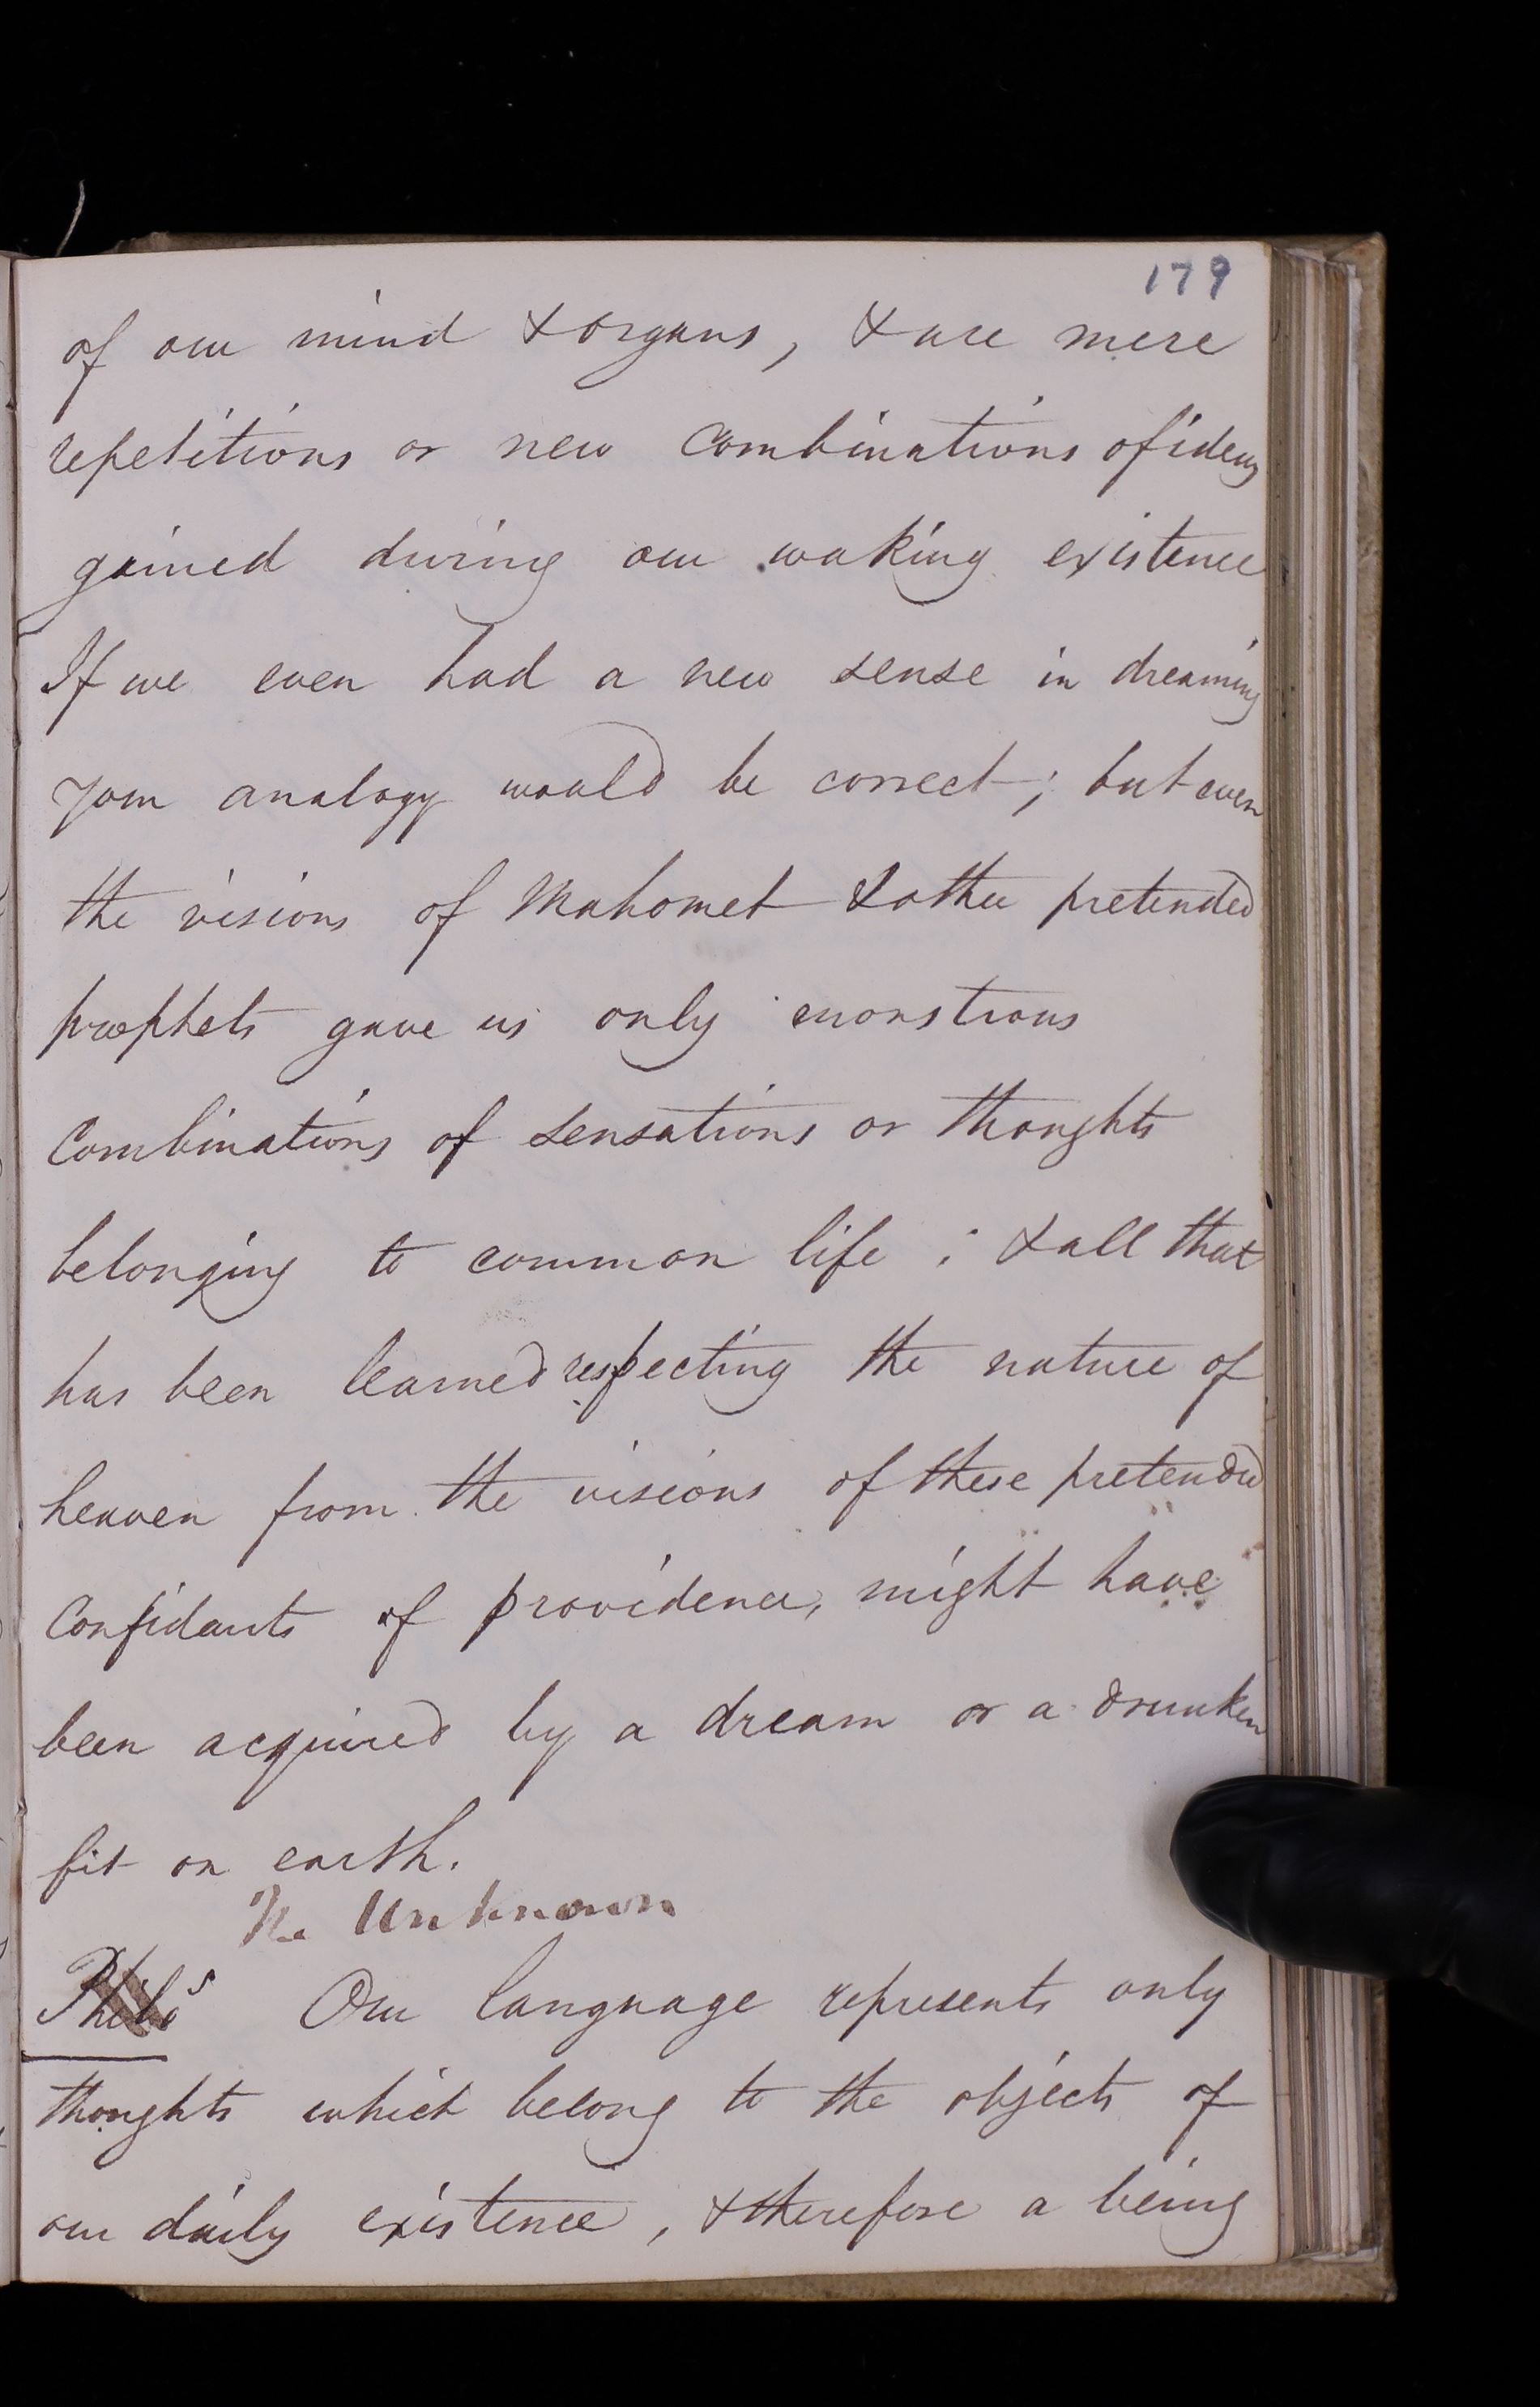 179
of our mind & organs, & are mere
repetitions or new combinations of ideas
gained during our waking existence
If we even had a new sense in dreaming
your analogy would be correct; but even
the visions of Mahomet & other pretended
prophets gave us only monstrous
Combinations of sensations or thoughts
belonging to common life; & all that
has been learned respecting the nature of
heaven from the visions of these pretended
Confidants of providence, might have
been acquired by a dream or a drunken
fit on earth.
The Unknown
Philos Our language represents only
thoughts which belong to the objects of
our daily existence, & therefore a being